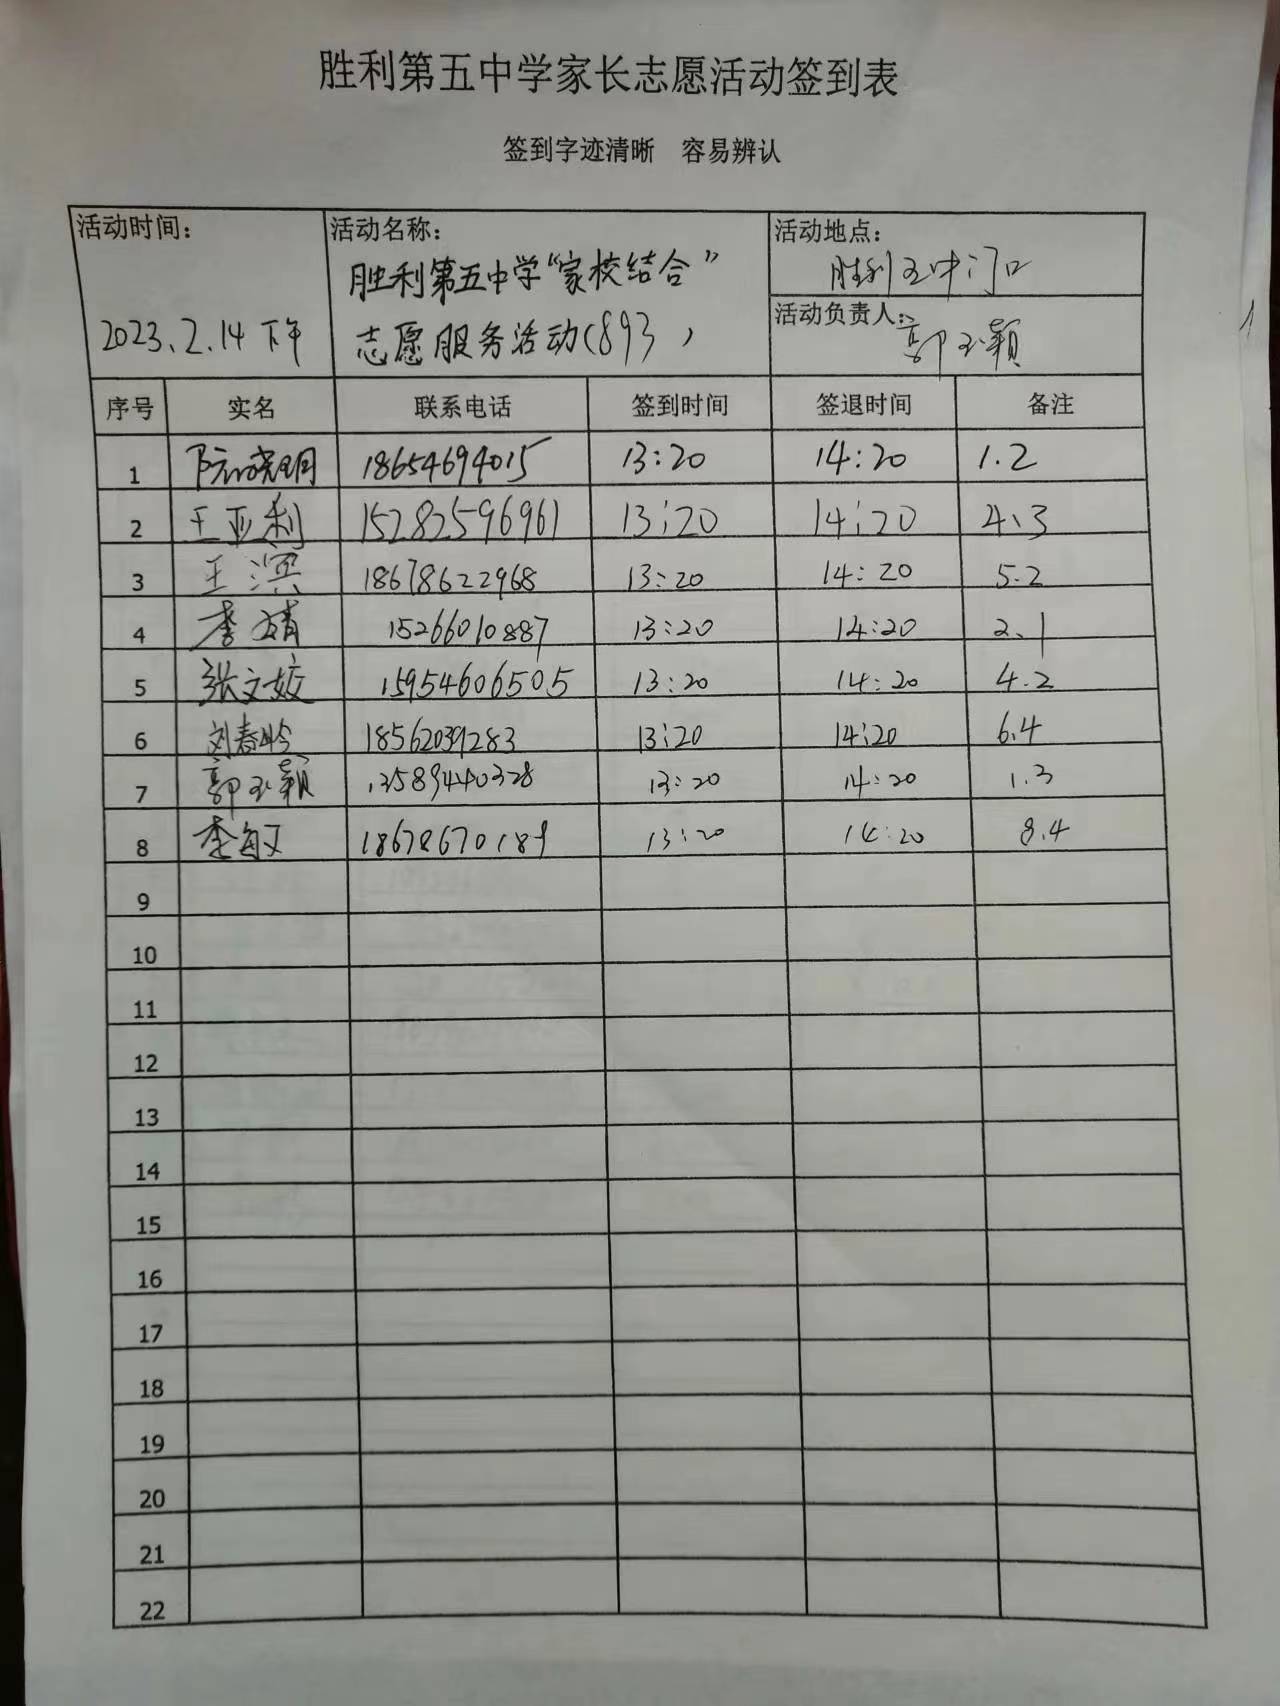 胜利第五中学家长志愿活动签到表
签到字迹清晰 容易辨认
活动时间: 活动名称: 活动地点:
胜利第五中学“家校结合” 胜利五中门口
2023.2.14下午 志愿服务活动(893) 活动负责人: 郭玉颖
序号 实名 联系电话 签到时间 签退时间 备注
1 阮晓明 18654694015 13:20 14:20 1.2
2 王亚利 15282596961 13:20 14:20 4、3
3 王溟 18678622968 13:20 14:20 5.2
4 李靖 15266010887 13:20 14:20 2、1
5 张文姣 15954606505 13:20 14:20 4.2
6 刘春玲 18562039283 13:20 14:20 6.4
7 郭玉颖 13589440328 13:20 14:20 1.3
8 李敏 18678670189 13:20 14:20 8.4
9
10
11
12
13
14
15
16
17
18
19
20
21
22